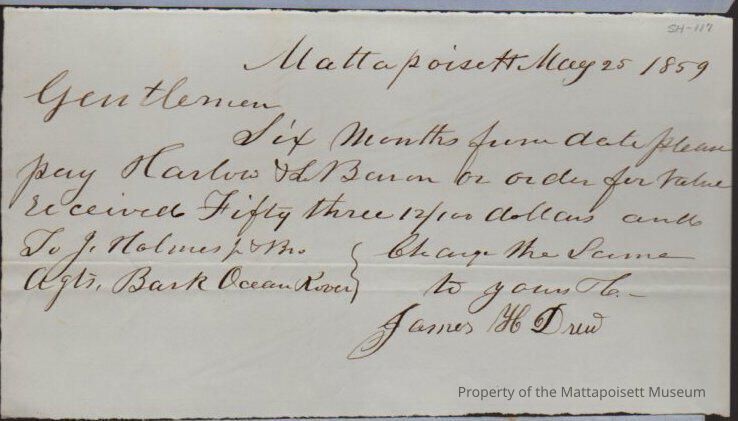 SH-117
Mattapoisett May 25 1859
Gentlemen
Six Months from date please
pay Harlow & LeBaron or order for value
received Fifty three 12/100 dollars and
To J. Holmes Jr & Bro
Agts, Bark Ocean Rover
Charge the Same
to yours &c
James H Drew
Property of the Mattapoisett Museum